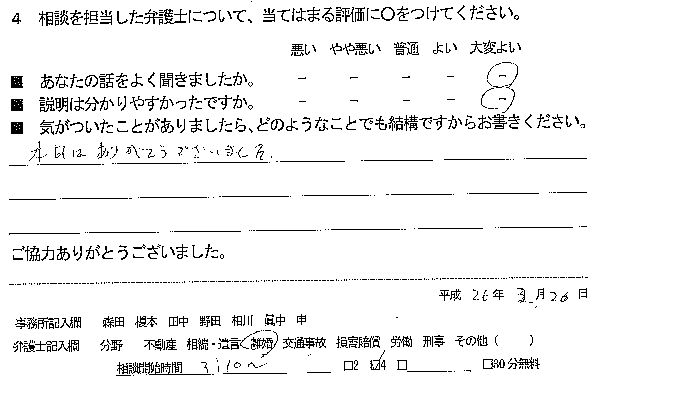 4 相談を担当した弁護士について、当てはまる評価に〇をつけてください。
悪い やや悪い 普通 よい 大変よい
■ あなたの話をよく聞きましたか。 － － － － －
■ 説明は分かりやすかったですか。 － － － － －
■ 気がついたことがありましたら、どのようなことでも結構ですからお書きください。
本日はありがとうございました。
ご協力ありがとうございました。
平成 26 年 月 26 日
事務所記入欄 森田 榎本 田中 野田 相川 眞中 申
弁護士記入欄 分野 不動産 相続・遺言 離婚 交通事故 損害賠償 労働 刑事 その他（ ）
相談開始時間 3:10～ □2 ☑4 □ □30分無料